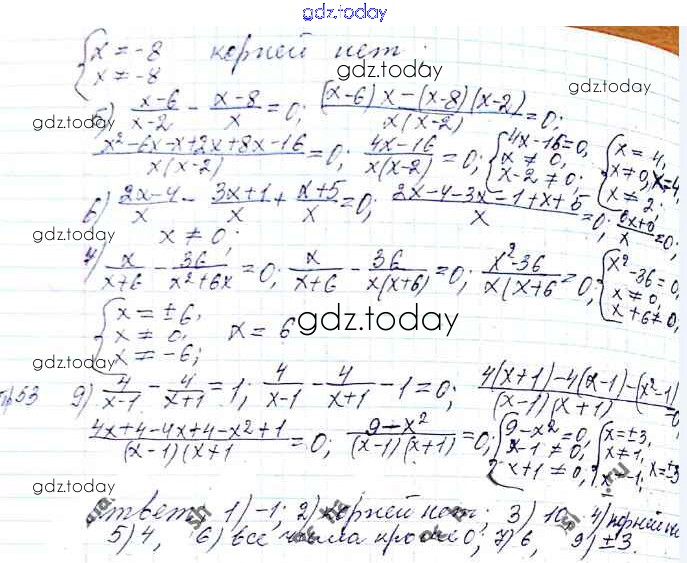 gdz.today
{ x = -8 корней нет;
x ≠ -8
gdz.today
gdz.today
5) (x-6)/(x-2) - (x-8)/x = 0; ((x-6)x-(x-8)(x-2))/(x(x-2)) = 0;
gdz.today
/(x(x-2)) = 0; (4x-16)/(x(x-2)) = 0; { 4x-16=0, x ≠ 0, x-2 ≠ 0; { x = 4, x ≠ 0, x ≠ 2; x=4,
6) (2x-4)/x - (3x+1)/x + (x+5)/x = 0; (2x-4-3x-1+x+5)/x = 0; /x = 0;
gdz.today
x ≠ 0;
7) x/(x+6) - 36/(x²+6x) = 0; x/(x+6) - 36/(x(x+6)) = 0; (x²-36)/(x(x+6 = 0; { x²-36=0, x ≠ 0, x+6 ≠ 0,
gdz.today
{ x = ±6, x ≠ 0, x ≠ -6; x = 6
gdz.today
gdz.today
53 9) 4/(x-1) - 4/(x+1) = 1; 4/(x-1) - 4/(x+1) - 1 = 0; (4(x+1)-4(x-1)-(x²-1))/((x-1)(x+1)) = 0,
(4x+4-4x+4-x²+1)/((x-1)(x+1 = 0; (9-x²)/((x-1)(x+1)) = 0; { 9-x²=0, x-1 ≠ 0, x+1 ≠ 0, { x=±3, x≠1, x≠-1, x=±3
gdz.today
Ответ: 1) -1; 2) корней нет; 3) 10, 4)
5) 4, 6) все числа кроме 0; 7) 6, 9) ±3.
gdz.today